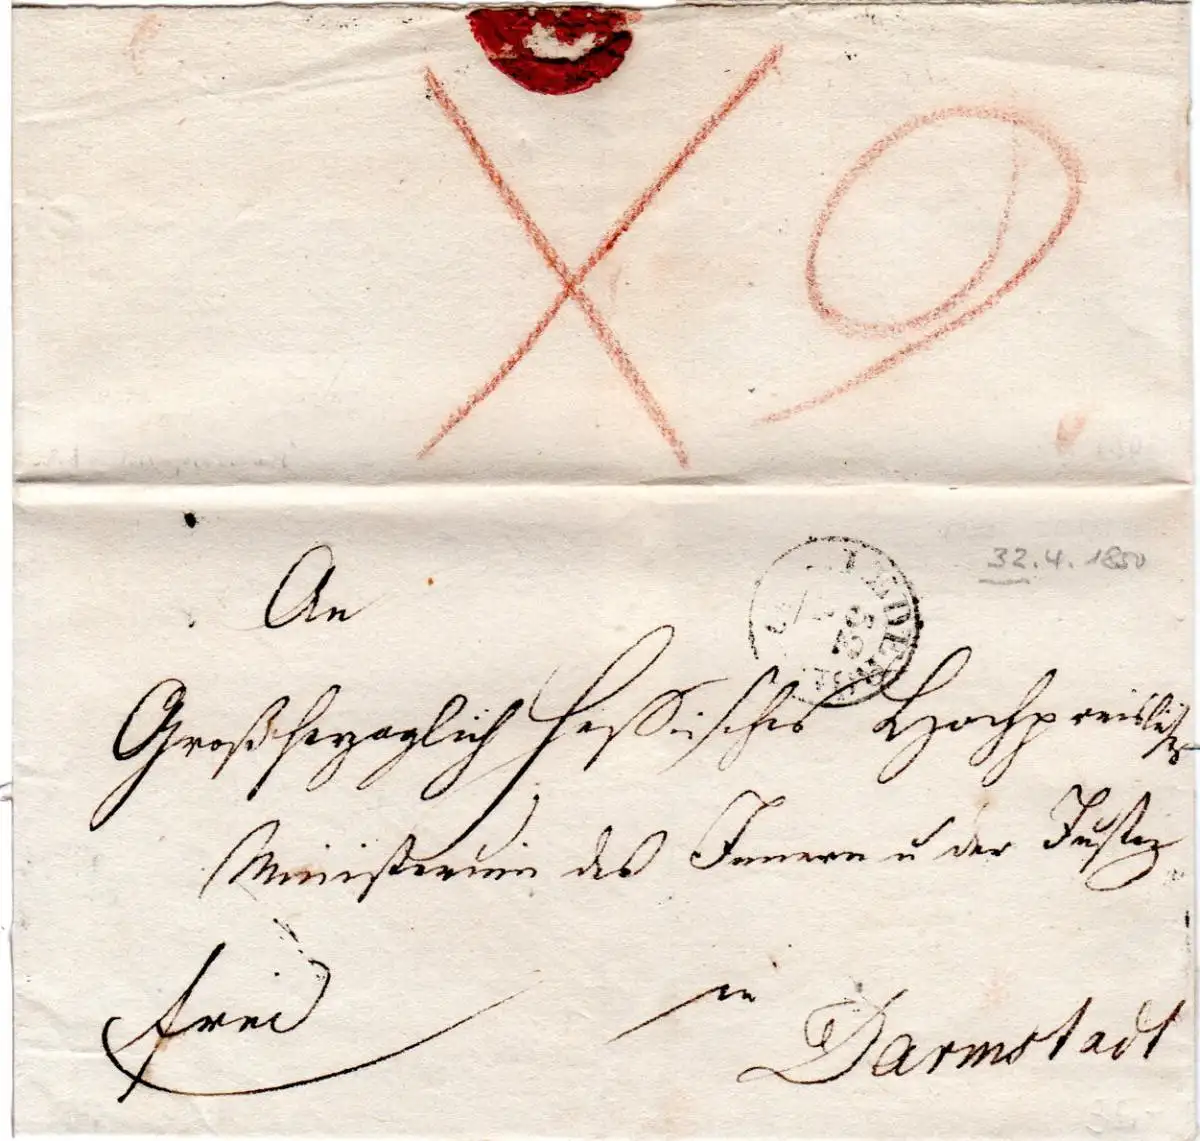 X 9
32.4.1850
An
Großherzoglich Hessisches Hochpreisliches
Ministerium des Innern u der Justiz
frei in Darmstadt